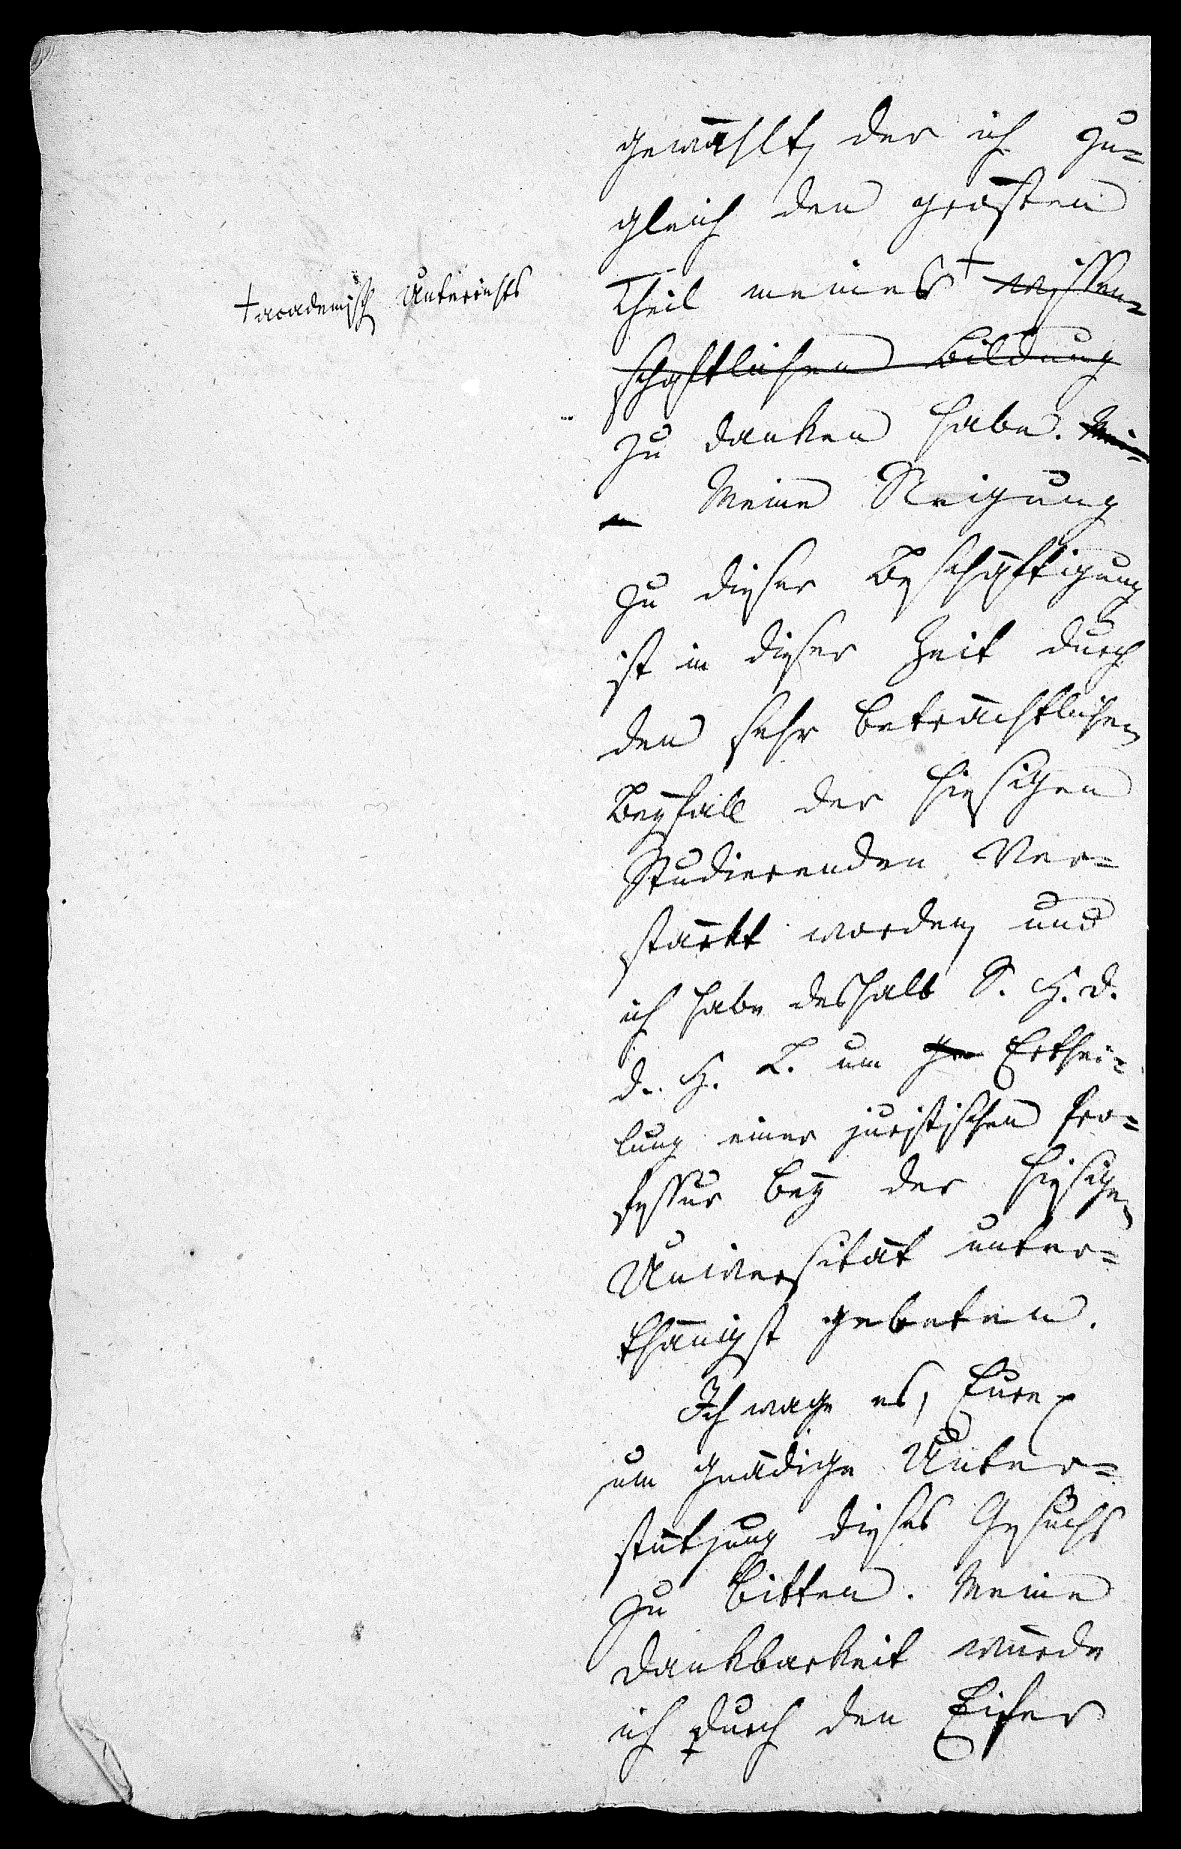 gewählt, der ich zu=
gleich den grösten
Theil meines + wissen=
+ academisch Unterrichts
schaftlichen Bildung
zu danken habe. Mei=
n Meine Neigung
zu dieser Beschäftigung
ist in dieser Zeit durch
den sehr beträchtlichen
Beyfall der hiesigen
Studierenden ver=
stärkt worden, und
ich habe deshalb S. H. D.
d. H. L. um ge Erthei=
lung einer juristischen Pro=
fessur bey der hiesigen
Universität unter=
thänigst gebeten.
Ich wage es, Eure
um gnädige Unter=
stützung dieses Gesuchs
zu bitten. Meine
Dankbarkeit würde
ich durch den Eifer